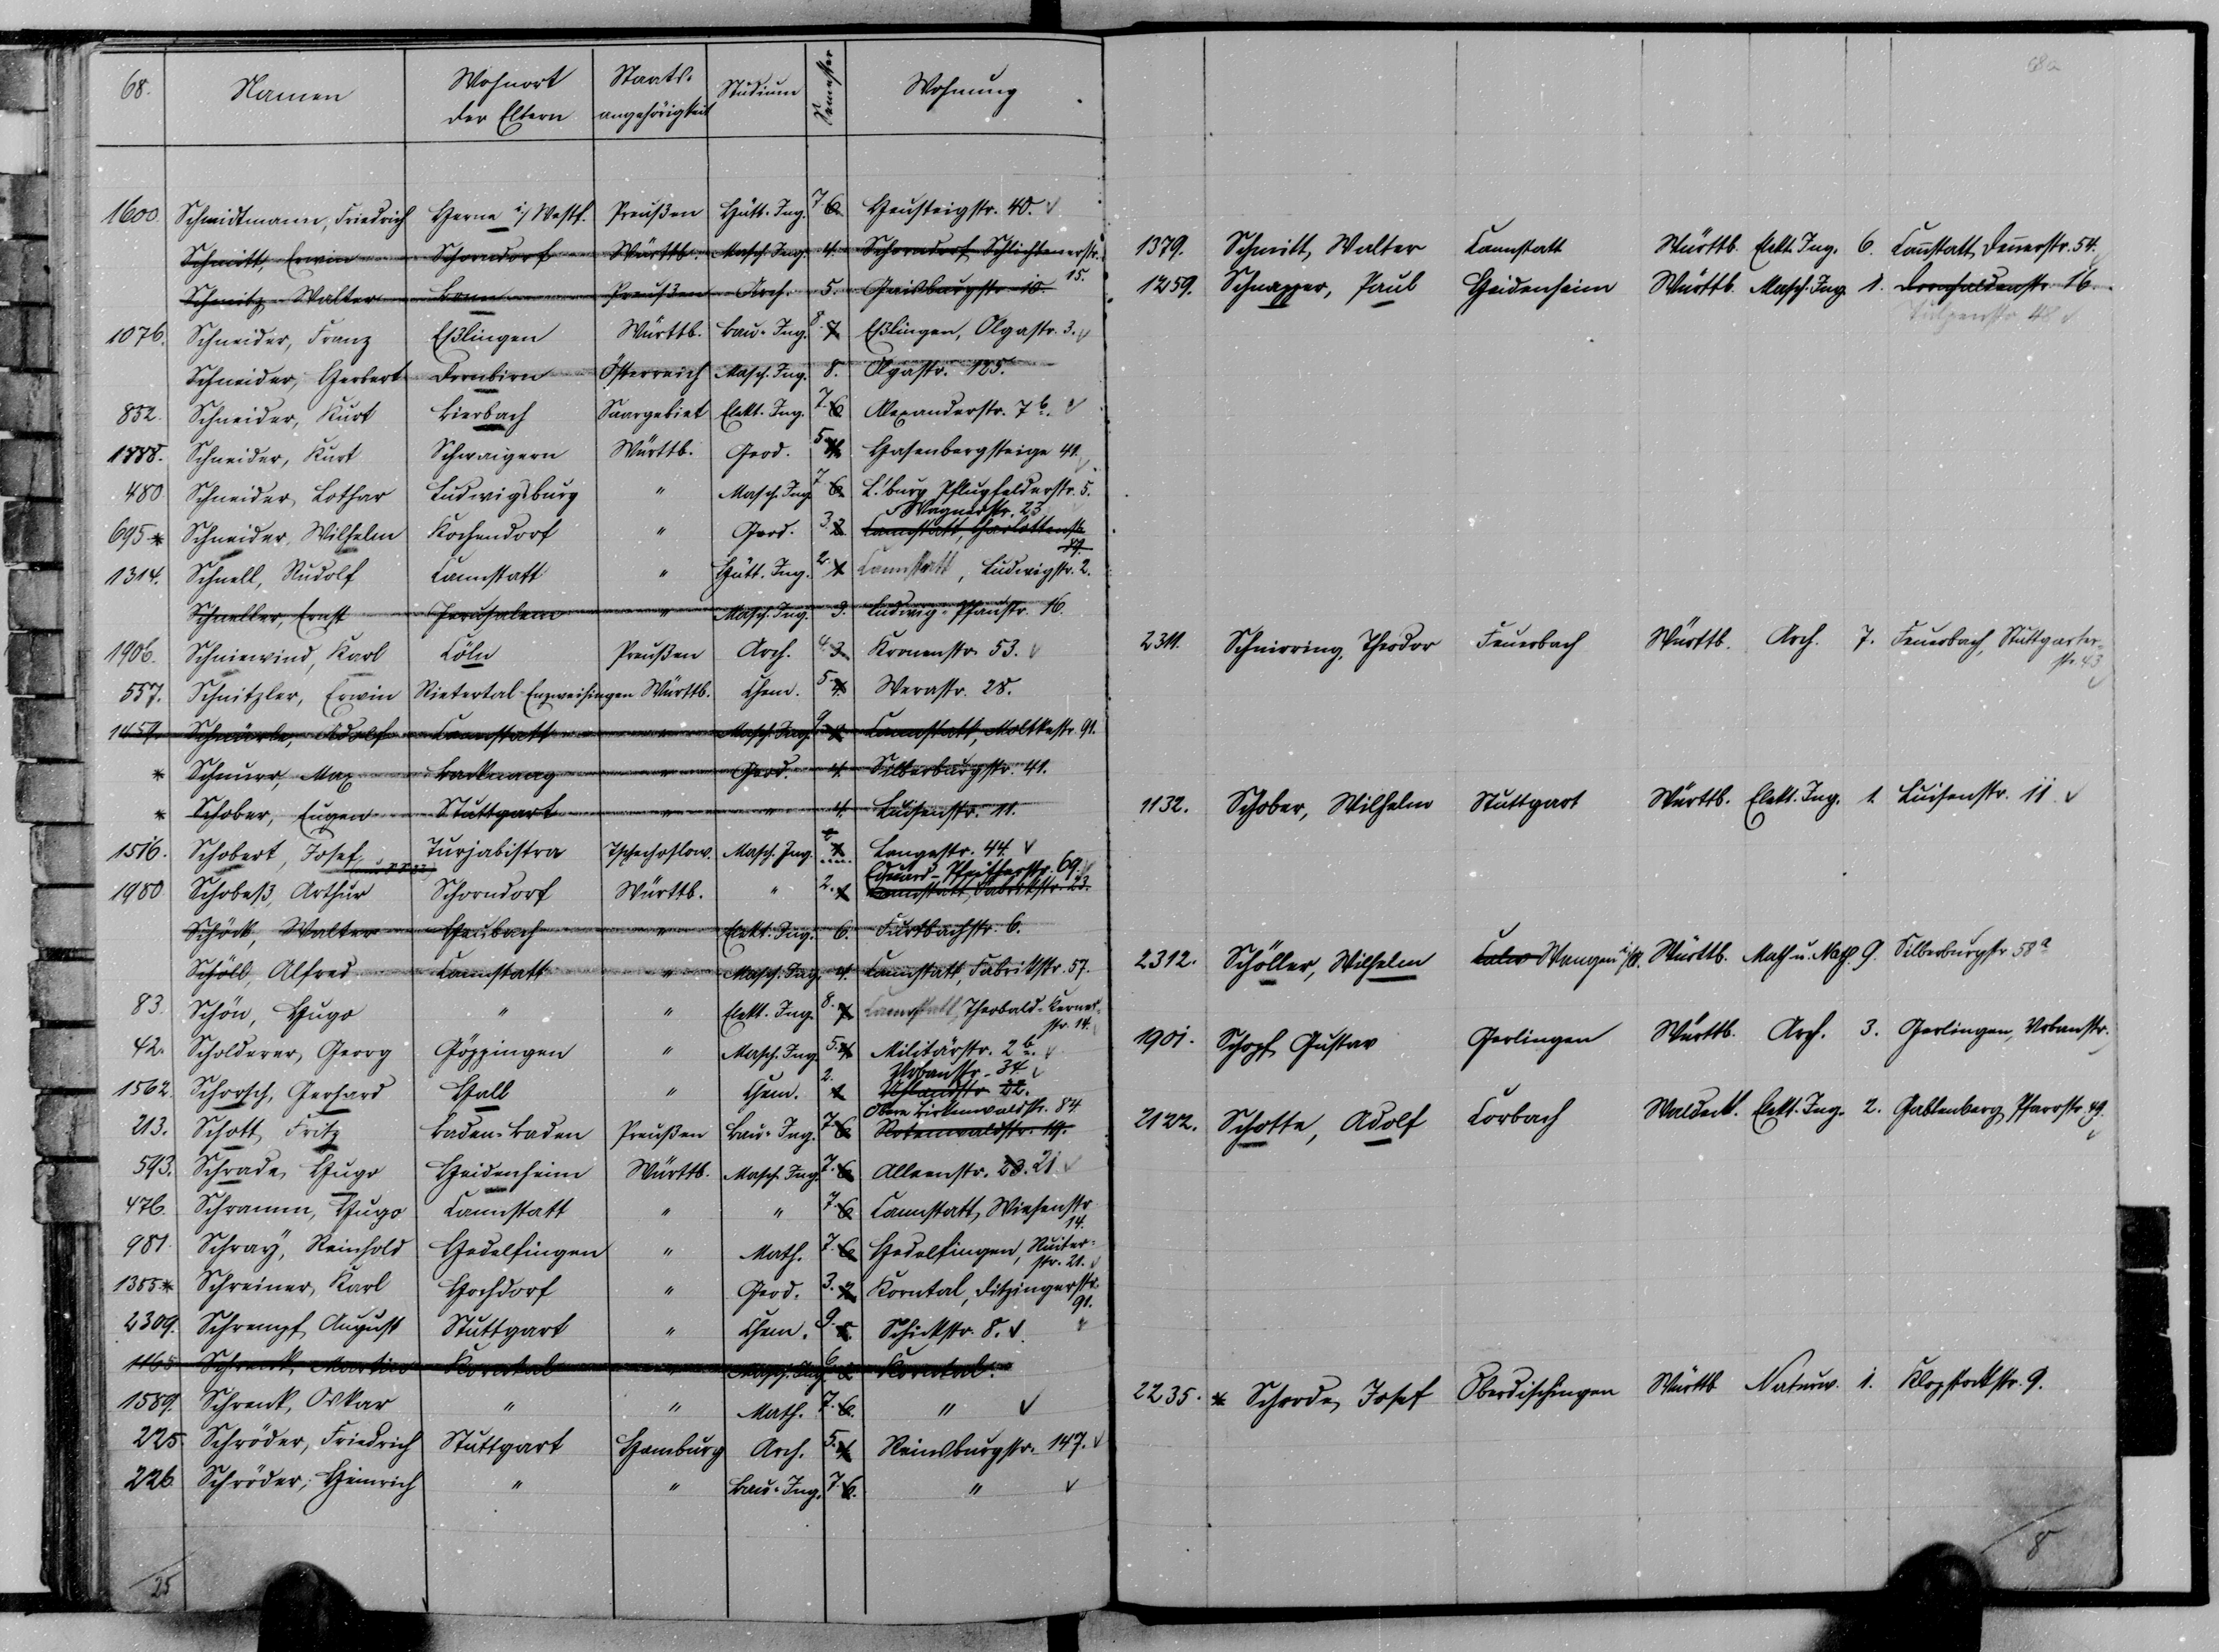 68. Namen Wohnort der Eltern Staats-angehörigkeit Studium Semester Wohnung
1600. Schmidtmann, Friedrich Herne i/Westf. Preußen Hütt. Ing. 7 6. Heusteigstr. 40. √
Schmitt, Erwin Schorndorf Württb. Masch. Ing. 4. Schorndorf Schlichtenerstr. 15.
Schmitz Walter Bonn Preußen Arch. 5. Gaisburgstr. 10.
1076. Schneider, Franz Eßlingen Württb. Bau-Ing. 8. 7. Eßlingen, Olgastr. 3. √
Schneider, Herbert Dornbirn Österreich Masch. Ing. 8. Olgastr. 125.
832. Schneider, Kurt Bierbach Saargebiet Elekt. Ing. 7. 6. Alexanderstr. 7b. √
1888. Schneider, Kurt Schwaigern Württb. Geod. 5. 4. Hasenbergsteige 41. √
480 Schneider, Lothar Ludwigsburg " Masch. Ing. 7 6. L.'burg Pflugfelderstr. 5.
695 * Schneider, Wilhelm Kochendorf " Geod. 3. 2. Wagnerstr. 23 Cannstatt, Charlottenstr.
1314. Schnell, Rudolf Cannstatt " Hütt. Ing. 2. 1. Cannstatt, Ludwigstr. 2.
Schneller, Ernst Jerusalem " Masch. Ing. 3. Ludwig-Pfaustr. 16
1906. Schniewind, Karl Cöln Preußen Arch. 4. 3. Kronenstr. 53. √
557. Schnitzler, Erwin Rietertal-Enzweihingen Württb. Chem. 5. 4. Werastr. 28.
1457. Schnürle, Adolf Cannstatt " Masch. Ing. Cannstatt, Moltkestr. 91.
* Schnurr, Max Backnang " Geod. 4. Silberburgstr. 41.
* Schober, Eugen Stuttgart " " 4. Luisenstr. 11.
1516. Schobert, Josef Turjabistra Tschechoslow. Masch. Ing. Langestr. 44. √
1980 Schobeß, Arthur Schorndorf Württb. " 2. 1. Eduard-Pfeifferstr. 69. √ Cannstatt, Fabrikstr. 23.
Schöck, Walter Heubach " Elekt. Ing. 6. Furtbachstr. 6.
Schöll, Alfred Cannstatt " Masch. Ing. 4. Cannstatt, Fabrikstr. 57.
83. Schön, Hugo " " Elekt. Ing. 8. 7. Cannstatt, Theobald-Kerner-str. 14.
42. Scholderer, Georg Göppingen " Masch. Ing. 5. 4. Militärstr. 2b. √
1562. Schorsch, Gerhard Hall " Chem. 2. 1. Urbanstr. 34. √ Uhlandstr. 22.
213. Schott, Fritz Baden-Baden Preußen Bau-Ing. 7. 6. Obere Birkenwaldstr. 84. Rotenwaldstr. 19.
593. Schrade, Hugo Heidenheim Württb. Masch. Ing. 7. 6. Alleenstr. 23. 21 √
476. Schramm, Hugo Cannstatt " " 7. 6. Cannstatt, Wiesenstr. 14.
981. Schray, Reinhold Hedelfingen " Math. 7. 6. Hedelfingen, Ruiter-str. 21. √
1385 * Schreiner, Karl Hochdorf " Geod. 3. 2. Korntal, Ditzingerstr. 91.
2309. Schrempf, August Stuttgart " Chem. 9. 8. Schickstr. 8. √
1165 Schrenk, Martin Korntal " Masch. Ing. 6 Korntal.
1589. Schrenk, Oskar " " Math. 7. 6. " √
225 Schröder, Friedrich Stuttgart Hamburg Arch. 5. 4. Reinsburgstr. 147. √
226 Schröder, Heinrich " " Bau-Ing. 7. 6. " √
25
68a
1379. Schmitt, Walter Cannstatt Württb. Elekt. Ing. 6. Canstatt, Dennerstr. 54. √
1259. Schnapper, Paul Heidenheim Württb. Masch. Ing. 1. Dornhaldenstr. 16.
Tulpenstr. 48 √
2311. Schnirring, Theodor Feuerbach Württb. Arch. 7. Feuerbach, Stuttgarter-str. 43 √
1132. Schober, Wilhelm Stuttgart Württb. Elekt. Ing. 1. Luisenstr. 11 √
2312. Schöller, Wilhelm Calw Wangen i/A. Württb. Math. u. Nat. 9. Silberburgstr. 58a
1901. Schopf, Gustav Gerlingen Württb. Arch. 3. Gerlingen, Urbanstr.
2122. Schotte, Adolf Corbach Waldeck. Elekt. Ing. 2. Gablenberg, Pfarrstr. 49. √
2235. * Schrode, Josef Oberdischingen Württb. Naturw. 1. Klopstockstr. 9.
8